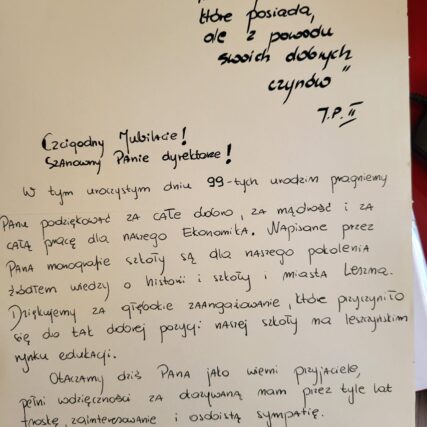 które posiada,
ale z powodu
swoich dobrych
czynów"
J.P. II
Czcigodny Jubilacie!
Szanowny Panie dyrektorze!
W tym uroczystym dniu 99-tych urodzin pragniemy
Panu podziękować za całe dobro, za mądrość i za
całą pracę dla naszego Ekonomika. Napisane przez
Pana monografie szkoły są dla naszego pokolenia
źródłem wiedzy o historii i szkoły i miasta Leszna.
Dziękujemy za głębokie zaangażowanie, które przyczyniło
się do tak dobrej pozycji naszej szkoły na leszczyńskim
rynku edukacji.
Otaczamy dziś Pana jako wierni przyjaciele,
pełni wdzięczności za okazywaną nam przez tyle lat
troskę, zainteresowanie i osobistą sympatię.